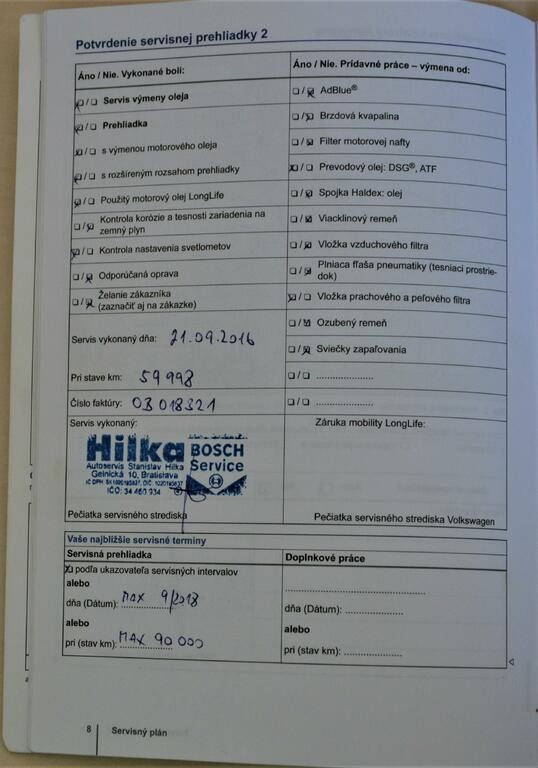 Potvrdenie servisnej prehliadky 2
Áno / Nie. Vykonané boli:
Servis výmeny oleja
Prehliadka
s výmenou motorového oleja
s rozšíreným rozsahom prehliadky
Použitý motorový olej LongLife
Kontrola korózie a tesnosti zariadenia na
zemný plyn
Kontrola nastavenia svetlometov
Odporúčaná oprava
Želanie zákazníka
(zaznačiť aj na zákazke)
Servis vykonaný dňa: 21.09.2016
Pri stave km: 59 998
Číslo faktúry: OB 018321
Servis vykonaný:
Hilka BOSCH
Service
Autoservis Stanislav Hilka
Gelnická 10, Bratislava
IČO: 34 460 934
Pečiatka servisného strediska
Áno / Nie. Prídavné práce – výmena od:
AdBlue®
Brzdová kvapalina
Filter motorovej nafty
Prevodový olej: DSG®, ATF
Spojka Haldex: olej
Viacklinový remeň
Vložka vzduchového filtra
Plniaca fľaša pneumatiky (tesniaci prostrie-
dok)
Vložka prachového a peľového filtra
Ozubený remeň
Sviečky zapaľovania
Záruka mobility LongLife:
Pečiatka servisného strediska Volkswagen
Vaše najbližšie servisné termíny
Servisná prehliadka
podľa ukazovateľa servisných intervalov
alebo
dňa (Dátum): MAX 9/2018
alebo
pri (stav km): MAX 90 000
Doplnkové práce
dňa (Dátum):
alebo
pri (stav km):
8 Servisný plán